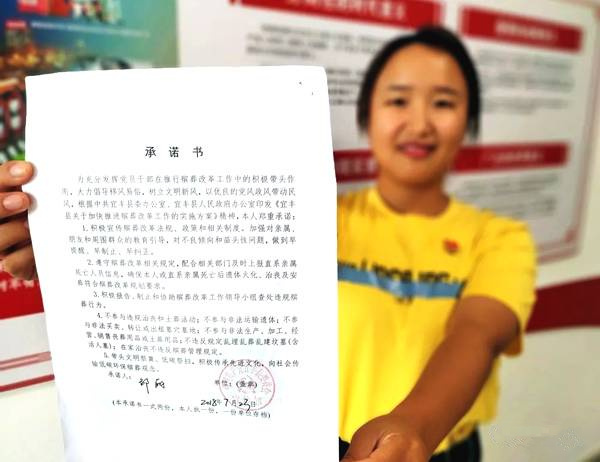 承诺书
为充分发挥党员干部在推行殡葬改革工作中的积极带头作
用,大力倡导移风易俗,树立文明新风,以优良的党风政风带动民
风,根据中共宜丰县委办公室、宜丰县人民政府办公室印发《宜丰
县关于加快推进殡葬改革工作的实施方案》精神,本人郑重承诺:
1.积极宣传殡葬改革法规、政策和相关制度。加强对亲属、
朋友和周围群众的教育引导,对不良倾向和苗头性问题,做到早
提醒、早制止、早纠正。
2.遵守殡葬改革相关规定,配合相关部门及时上报直系亲属
死亡人员信息,确保本人或直系亲属死亡后遗体火化、治丧及安
葬符合殡葬改革规划要求。
3.积极报告、制止和协助殡葬改革工作领导小组查处违规殡
葬行为。
4.不参与违规治丧和土葬活动;不参与非法运输遗体;不参
与非法买卖、转让或出租墓穴墓地;不参与非法生产、加工、经
营、销售丧葬用品或土葬用品;不违反规定乱埋乱葬乱建坟墓(含
活人墓);在家治丧不违反殡葬管理规定。
5.带头文明祭奠、低碳祭扫,积极传承先进文化,向社会传
输低碳环保殡葬观念。
承诺人: 单位:(盖章)
2018年7月23日
(本承诺书一式两份,本人执一份,一份单位存档)